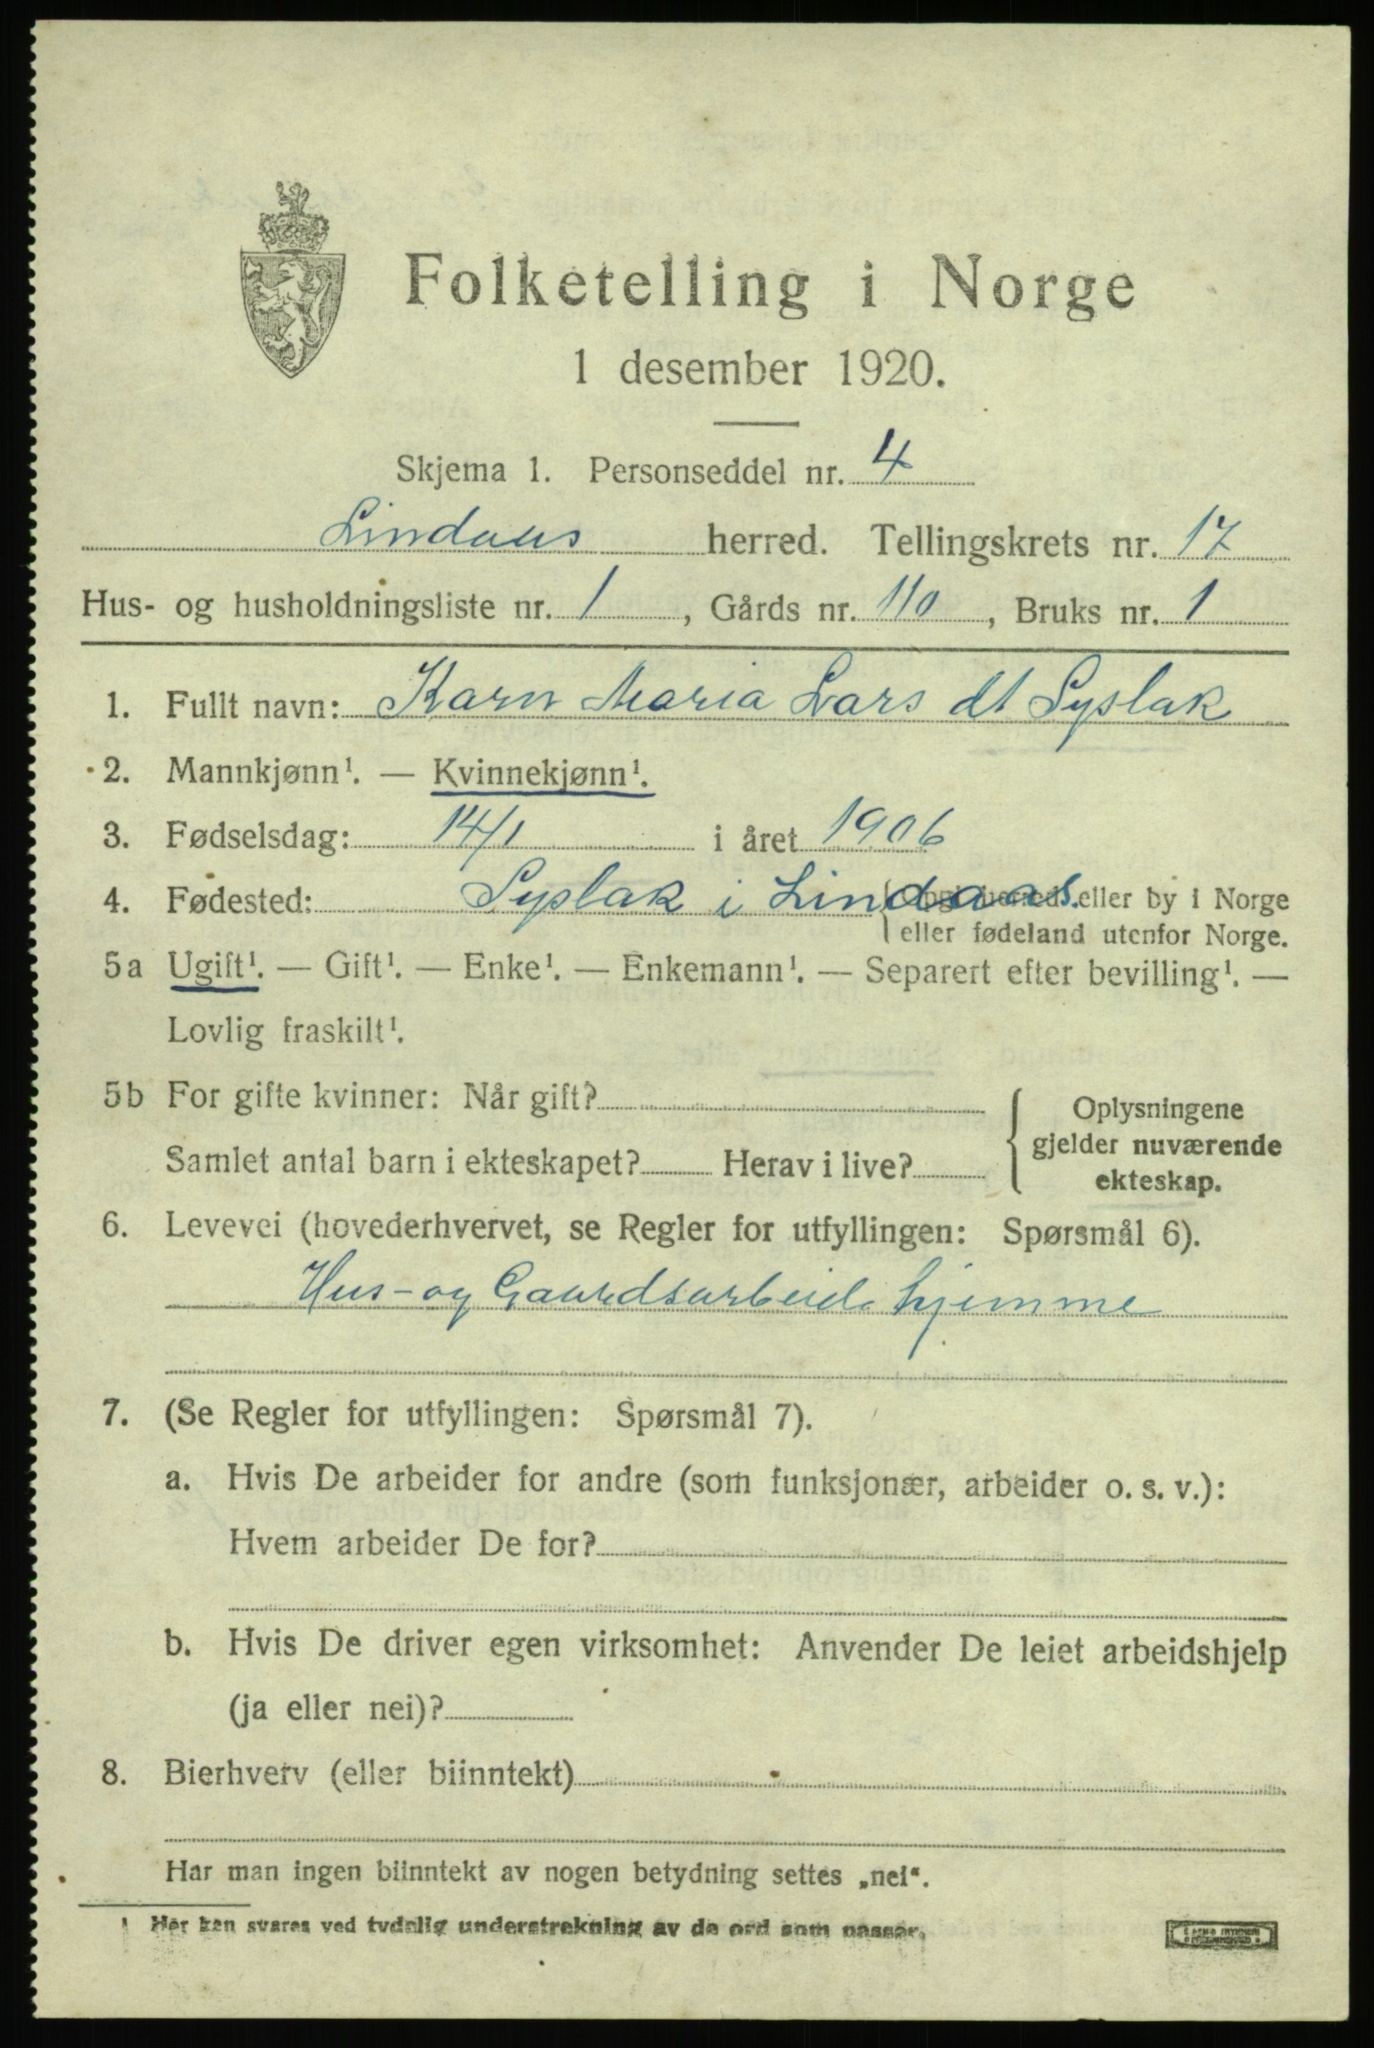 Folketelling i Norge
1 desember 1920.
Skjema 1. Personseddel nr. 4
Lindaas herred. Tellingskrets nr. 17
Hus- og husholdningsliste nr. 1, Gårds nr. 110, Bruks nr. 1
1. Fullt navn: Karn Maria Lars dt Syslak
2. Mannkjønn¹. — Kvinnekjønn¹.
3. Fødselsdag: 14/1 i året 1906
4. Fødested: Syslak i Lindaas. eller by i Norge
eller fødeland utenfor Norge.
5a Ugift¹. — Gift¹. — Enke¹. — Enkemann¹. — Separert efter bevilling¹. —
Lovlig fraskilt¹.
5b For gifte kvinner: Når gift?
Samlet antal barn i ekteskapet? Herav i live?
Oplysningene
gjelder nuværende
ekteskap.
6. Levevei (hovederhvervet, se Regler for utfyllingen: Spørsmål 6).
Hus- og Gaardsarbeide hjemme
7. (Se Regler for utfyllingen: Spørsmål 7).
a. Hvis De arbeider for andre (som funksjonær, arbeider o. s. v.):
Hvem arbeider De for?
b. Hvis De driver egen virksomhet: Anvender De leiet arbeidshjelp
(ja eller nei)?
8. Bierhverv (eller biinntekt)
Har man ingen biinntekt av nogen betydning settes „nei“.
1 Her kan svares ved tydelig understrekning av de ord som passer.